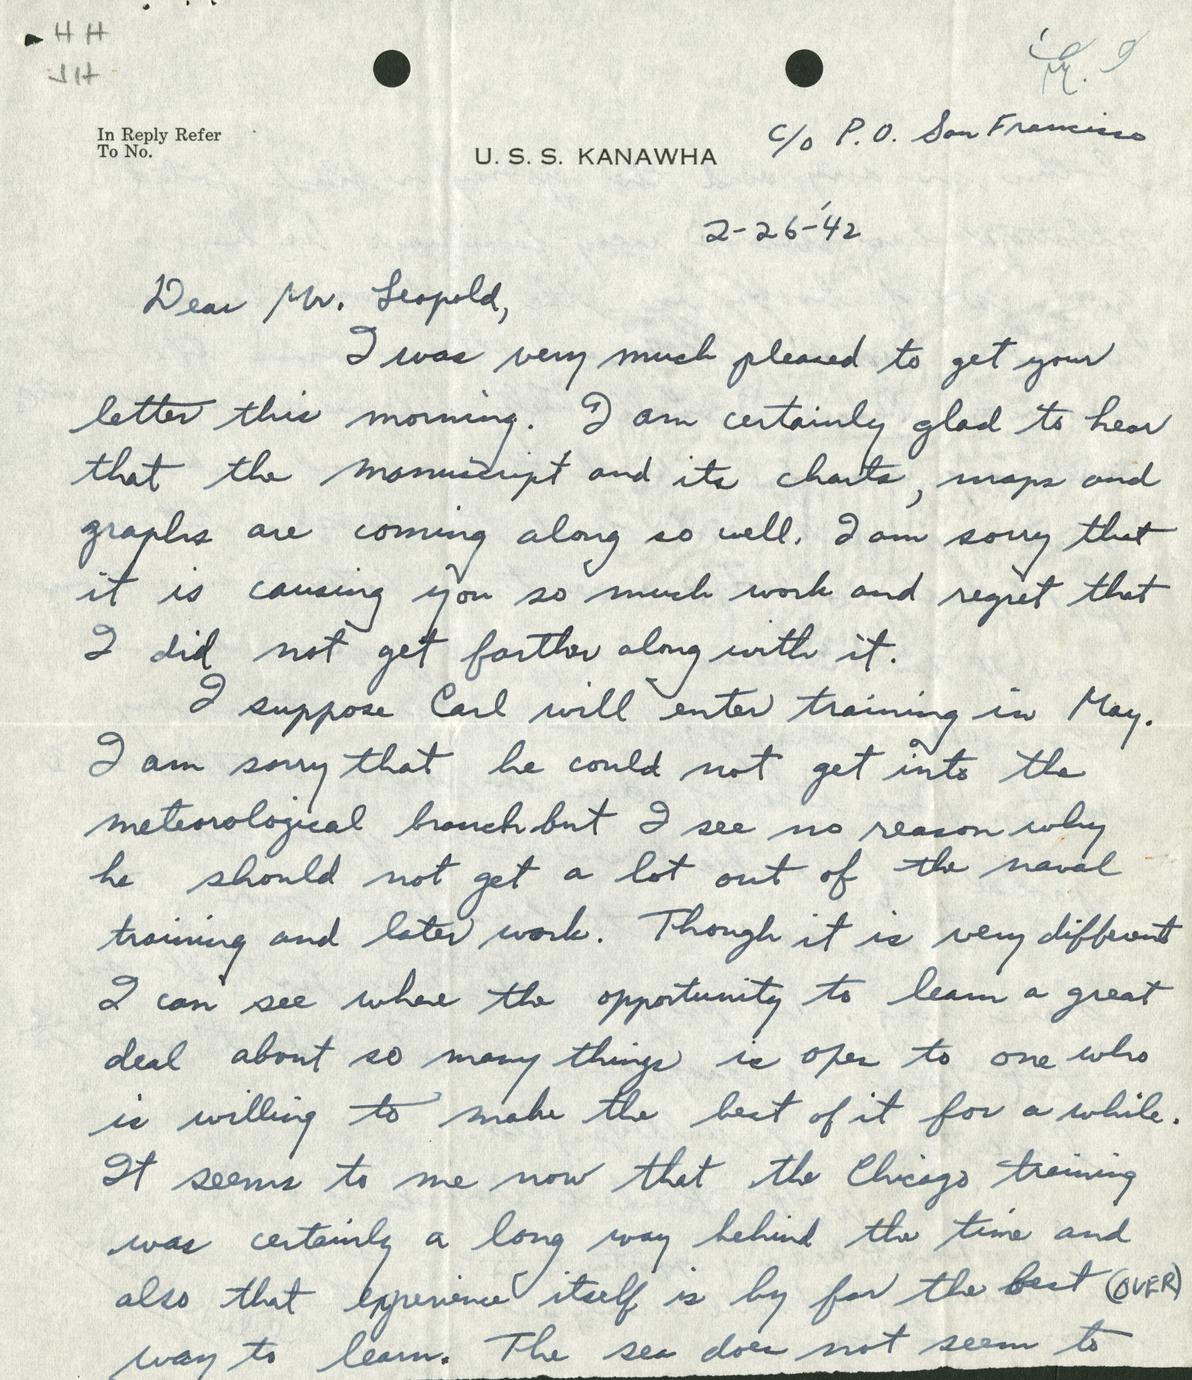 H H
JH
In Reply Refer
To No.
U. S. S. KANAWHA
c/o P.O. San Francisco
2-26-'42
Dear Mr. Leopold,
I was very much pleased to get your
letter this morning. I am certainly glad to hear
that the manuscript and its charts, maps and
graphs are coming along so well. I am sorry that
it is causing you so much work and regret that
I did not get farther along with it.
I suppose Carl will enter training in May.
I am sorry that he could not get into the
meteorological branch but I see no reason why
he should not get a lot out of the naval
training and later work. Though it is very different
I can see where the opportunity to learn a great
deal about so many things is open to one who
is willing to make the best of it for a while.
It seems to me now that the Chicago training
was certainly a long way behind the time and
also that experience itself is by far the best (OVER)
way to learn. The sea does not seem to